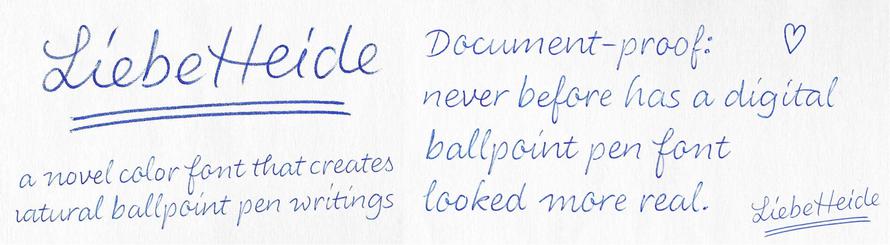 LiebeHeide
a novel color font that creates
natural ballpoint pen writings
Document-proof: ♡
never before has a digital
ballpoint pen font
looked more real.
LiebeHeide